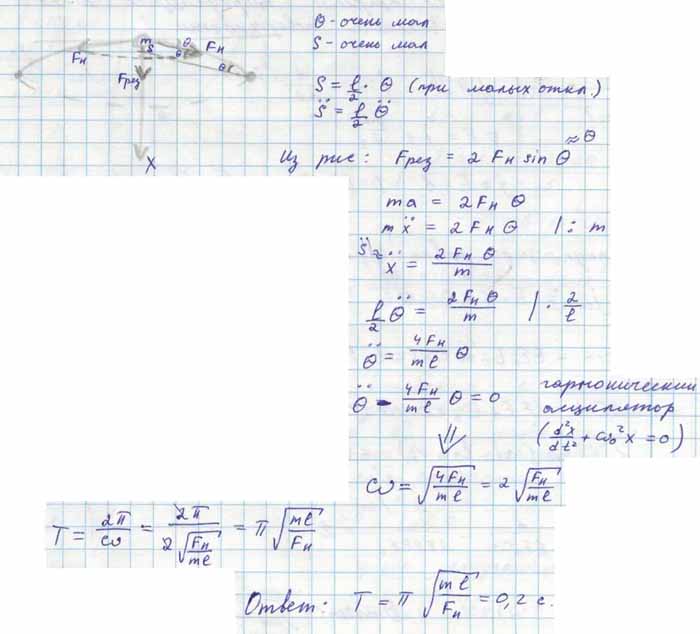 m
S
θ
Fн
Fн
θ
θ
Fрез
X
θ - очень мал
S - очень мал
S = l/2 · θ (при малых откл.)
S̈ = l/2 θ̈
Из рис: Fрез = 2 Fн sin θ ≈ θ
ma = 2Fн θ
mẍ = 2Fн θ | : m
S̈ ≈ ẍ = 2Fн θ / m
l/2 θ̈ = 2Fн θ / m | · 2/l
θ̈ = 4Fн / ml θ
θ̈ - 4Fн / ml θ = 0 гармонический
осциллятор
(d²x/dt² + ω₀² x = 0)
⇓
ω = √(4Fн / ml) = 2 √(Fн / ml)
T = 2π / ω = 2π / (2 √(Fн / ml)) = π √(ml / Fн)
Ответ: T = π √(ml / Fн) = 0,2 с.